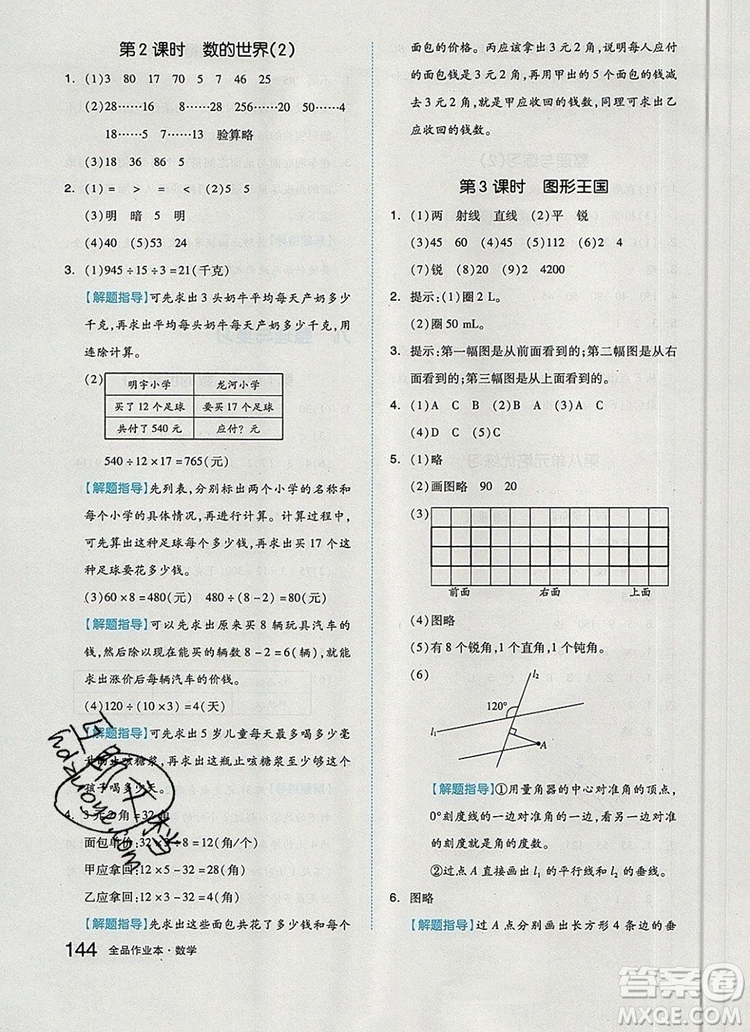 第2课时 数的世界(2)
1. (1)3 80 17 70 5 7 46 25
(2)28……16 8……28 256……20 50……4
18……5 7……13 验算略
(3)18 36 86 5
2. (1)= > = < (2)5 5
(3)明 暗 5 明
(4)40 (5)53 24
3. (1)945÷15÷3=21(千克)
【解题指导】可先求出3头奶牛平均每天产奶多少
千克,再求出平均每头奶牛每天产奶多少千克,用
连除计算。
(2)
明宇小学 龙河小学
买了12个足球 要买17个足球
共付了540元 应付?元
540÷12×17=765(元)
【解题指导】先列表,分别标出两个小学的名称和
每个小学的具体情况,再进行计算。计算过程中,
可先求出这种足球每个多少钱,再求出买17个这种
足球要花多少钱。
(3)60×8=480(元) 480÷(8-2)=80(元)
【解题指导】可以先求出原来买8辆玩具汽车的
钱,再求出现在能买的辆数8-2=6(辆),就能求
出涨价后每辆汽车的价钱。
(4)120÷(10×3)=4(天)
【解题指导】先求出5岁儿童每天最多喝多少毫
升这种止咳糖浆,再求这瓶止咳糖浆最少可以给这个
孩子喝多少天。
4. 3元2角=32角
面包单价:32×3÷8=12(角/个)
甲应拿回:12×5-32=28(角)
乙应拿回:12×3-32=4(角)
【解题指导】先求出这些面包共花了多少钱和每个
144 全品作业本·数学
面包的价格。丙应该拿出3元2角,说明每人应付
的面包钱是3元2角,再用甲付出的5个面包的钱减
去3元2角,就是甲应收回的钱数,同理可求出乙
应收回的钱数。
第3课时 图形王国
1. (1)两 射线 直线 (2)平 锐
(3)45 60 (4)90 (5)112 (6)2 4
(7)锐 (8)90 (9)2 4200
2. 提示:(1)圈2 L。
(2)圈50 mL。
3. 提示:第一幅图是从前面看到的;第二幅图是从右
面看到的;第三幅图是从上面看到的。
4. (1)A C B (2)A B C (3)A
(4)D C (5)B
5. (1)略
(2)画图略 90 20
(3)
前面 右面 上面
(4)图略
(5)有8个锐角,1个直角,1个钝角。
(6)
l₂
120°
l₁
A
【解题指导】①用量角器的中心对准角的顶点,
0°刻度线的一边对准角的一边,看另一边对准
的刻度就是角的度数。
②过点A直接画出l₁的平行线和l₂的垂线。
6. 图略
【解题指导】过A点分别画出长方形4条边的垂
答案圈
MXQE.COM